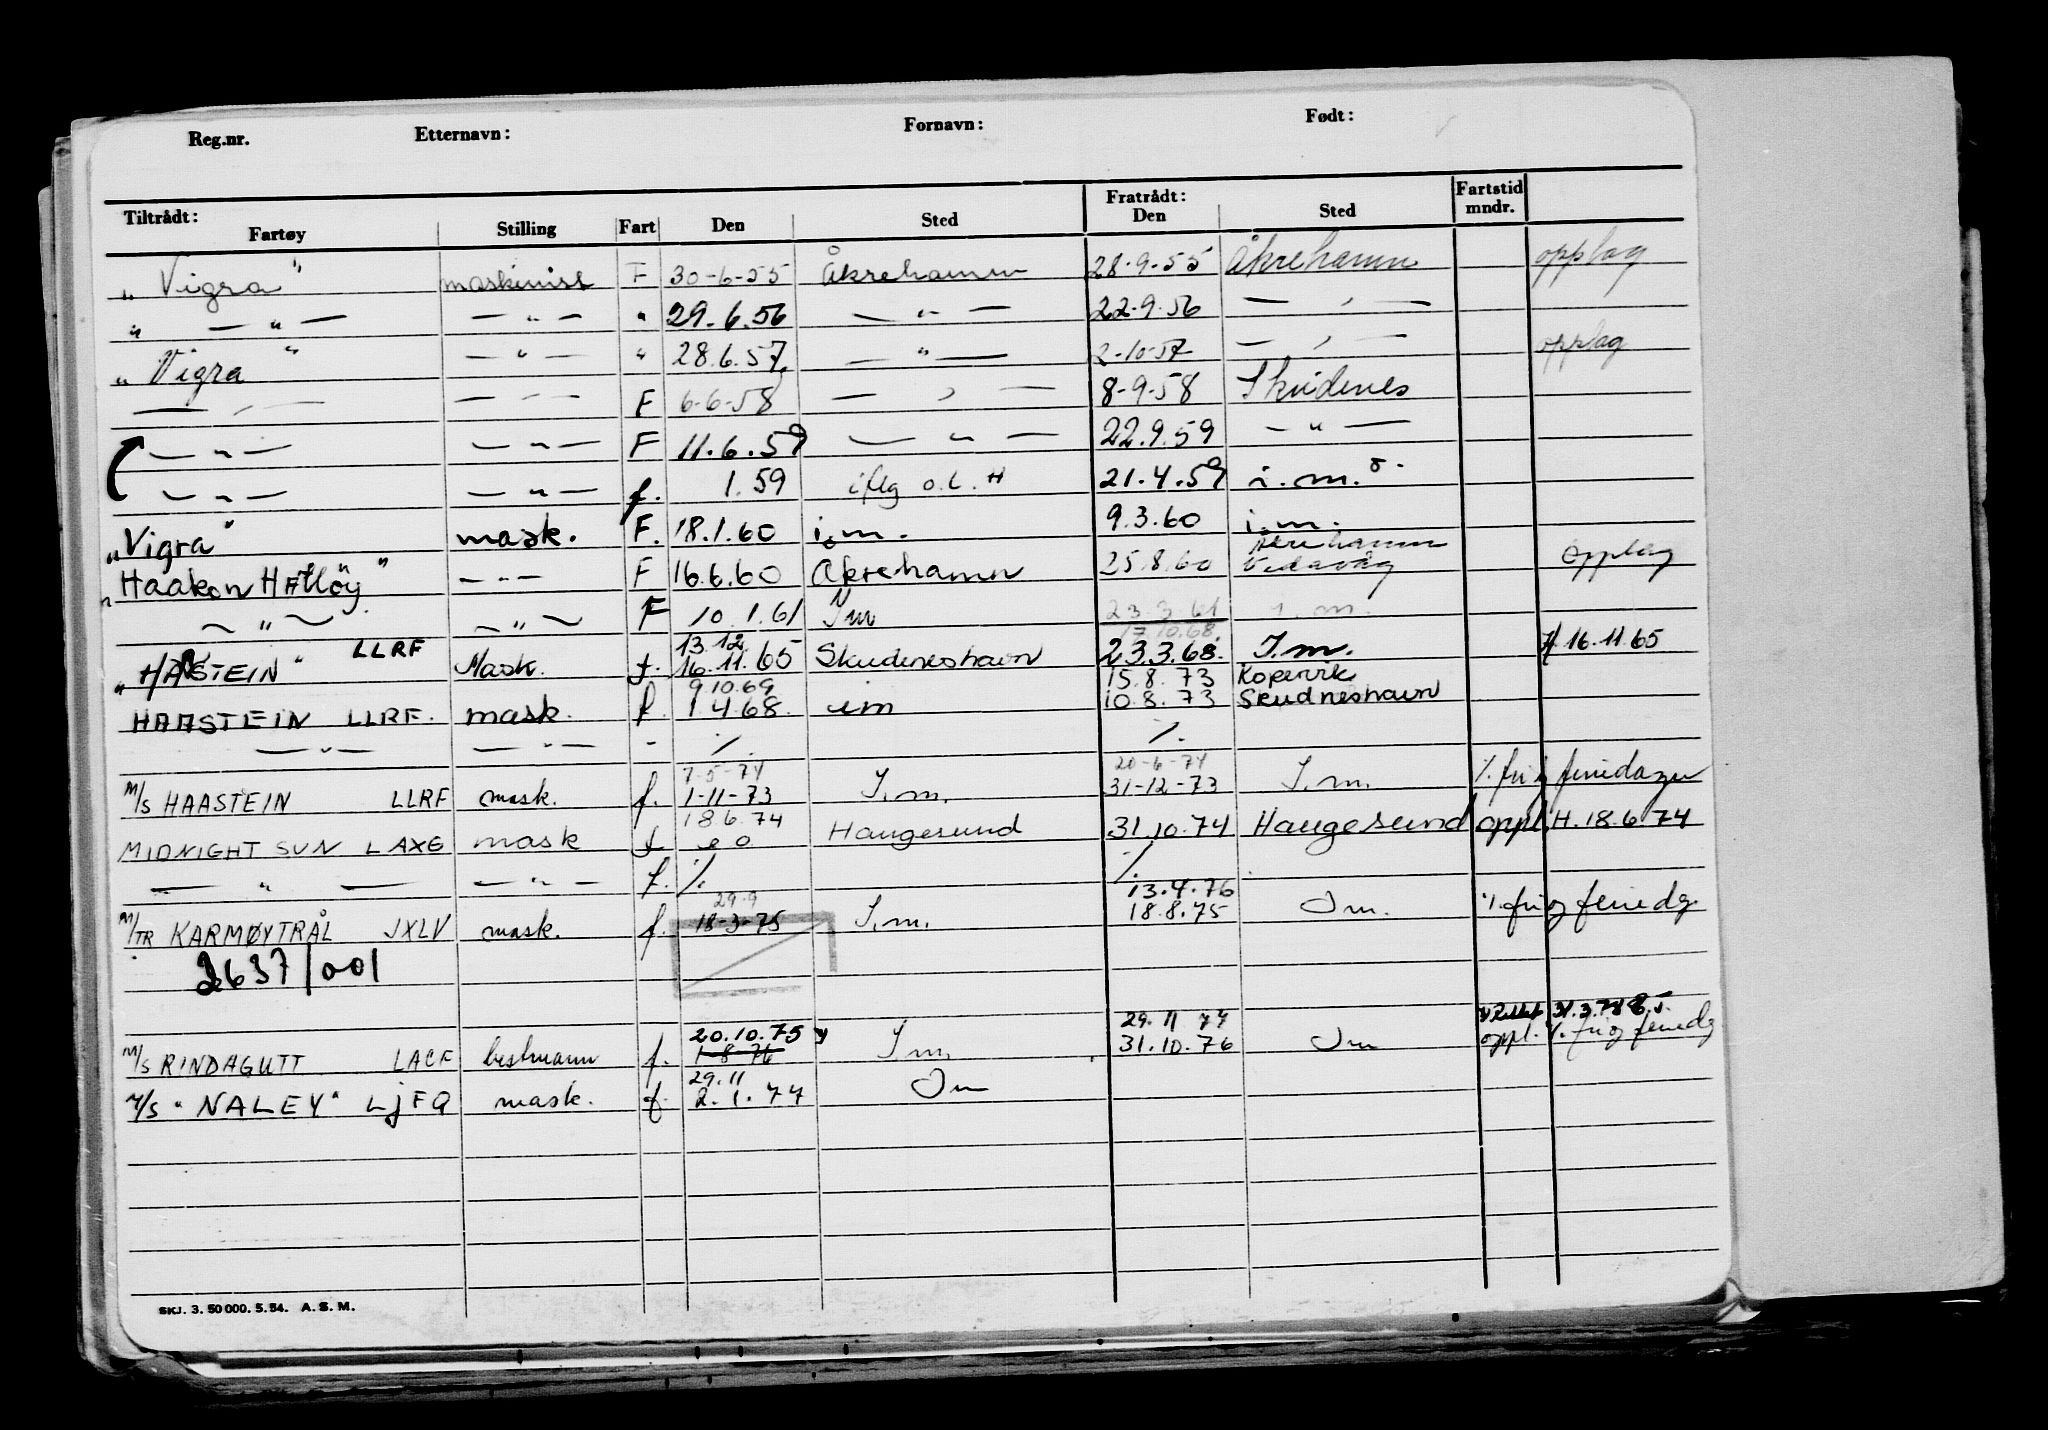 Reg.nr. Etternavn: Fornavn: Født:
Tiltrådt: Fratrådt: Fartstid
Fartøy Stilling Fart Den Sted Den Sted mndr.
„ Vigra " maskinist F 30-6-55 Åkrehamn 28-9-55 Åkrehamn opplag
" — " — — " — " 29.6.56 — " — 22-9.56 — " —
„ Vigra " — " — " 28.6.57 — " — 2-10-57 — " — opplag
— " — — " — F 6-6-58 — " — 8-9-58 Skudenes
— " — — " — F 11.6.59 — " — 22.9.59 — " —
— " — — " — f. 1.59 iflg o.l. H 21.4.59 i.m.
„Vigra" mask. F. 18.1.60 i.m. 9.3.60 i.m.
Åkrehamn
„Haakon Håtløy" — " — F 16.6.60 Åkrehamn 25.8.60 Vedavåg opplag
— " — — " — F 10.1.61 Im 23.3.61 i.m.
13.12 17.10.68.
„HAASTEIN" LLRF Mask. f. 16.11.65 Skudeneshavn 23.3.68. I.m. H 16.11.65
9.10.69 15.8.73 Kopervik
HAASTEIN LLRF. mask. f 1.4.68. im 10.8.73 Skudneshavn
— " — — " — - ./. ./.
7-5-74 20-6-74
M/S HAASTEIN LLRF mask. f. 1-11-73 I.m. 31-12-73 I.m. ./. fri og feriedager
18.6.74
MIDNIGHT SUN LAXG mask f e o Haugesund 31.10.74 Haugesund oppl. H. 18.6.74
— " — — " — f. ./. ./.
29.9 13.4.76
M/TR KARMØYTRÅL JXLV mask. f. 18-3-75 I.m. 18.8.75 Im. ./. fri og feriedg
2637/001
20.10.75 29.11 77
M/S RINDAGUTT LACF bestmann f. 1-8-76 I m. 31.10.76 Im oppl. ./. fri og feriedg
29.11
M/S "NALEY" LJFQ mask. f. 2.1.77 Im
SKJ. 3. 50 000. 5. 54. A. S. M.